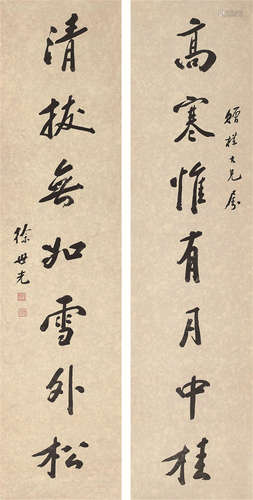 高寒惟有月中桂
大兄属
清拔无如雪外松
徐世光